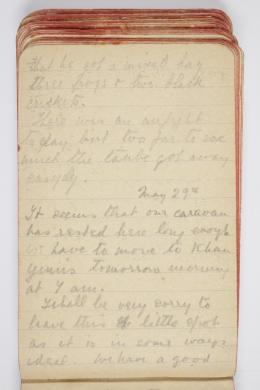 that he got a mixed bag
three frogs & two black
crickets.
There was an airfight
today but too far to see
much the taube got away
easyly.
May 29th
It seems that our caravan
has rested here long enough
we have to move to Khan
yunus tomorrow morning
at 7 am.
I shall be very sorry to
leave this little spot
as it is in some ways
ideal we have a good